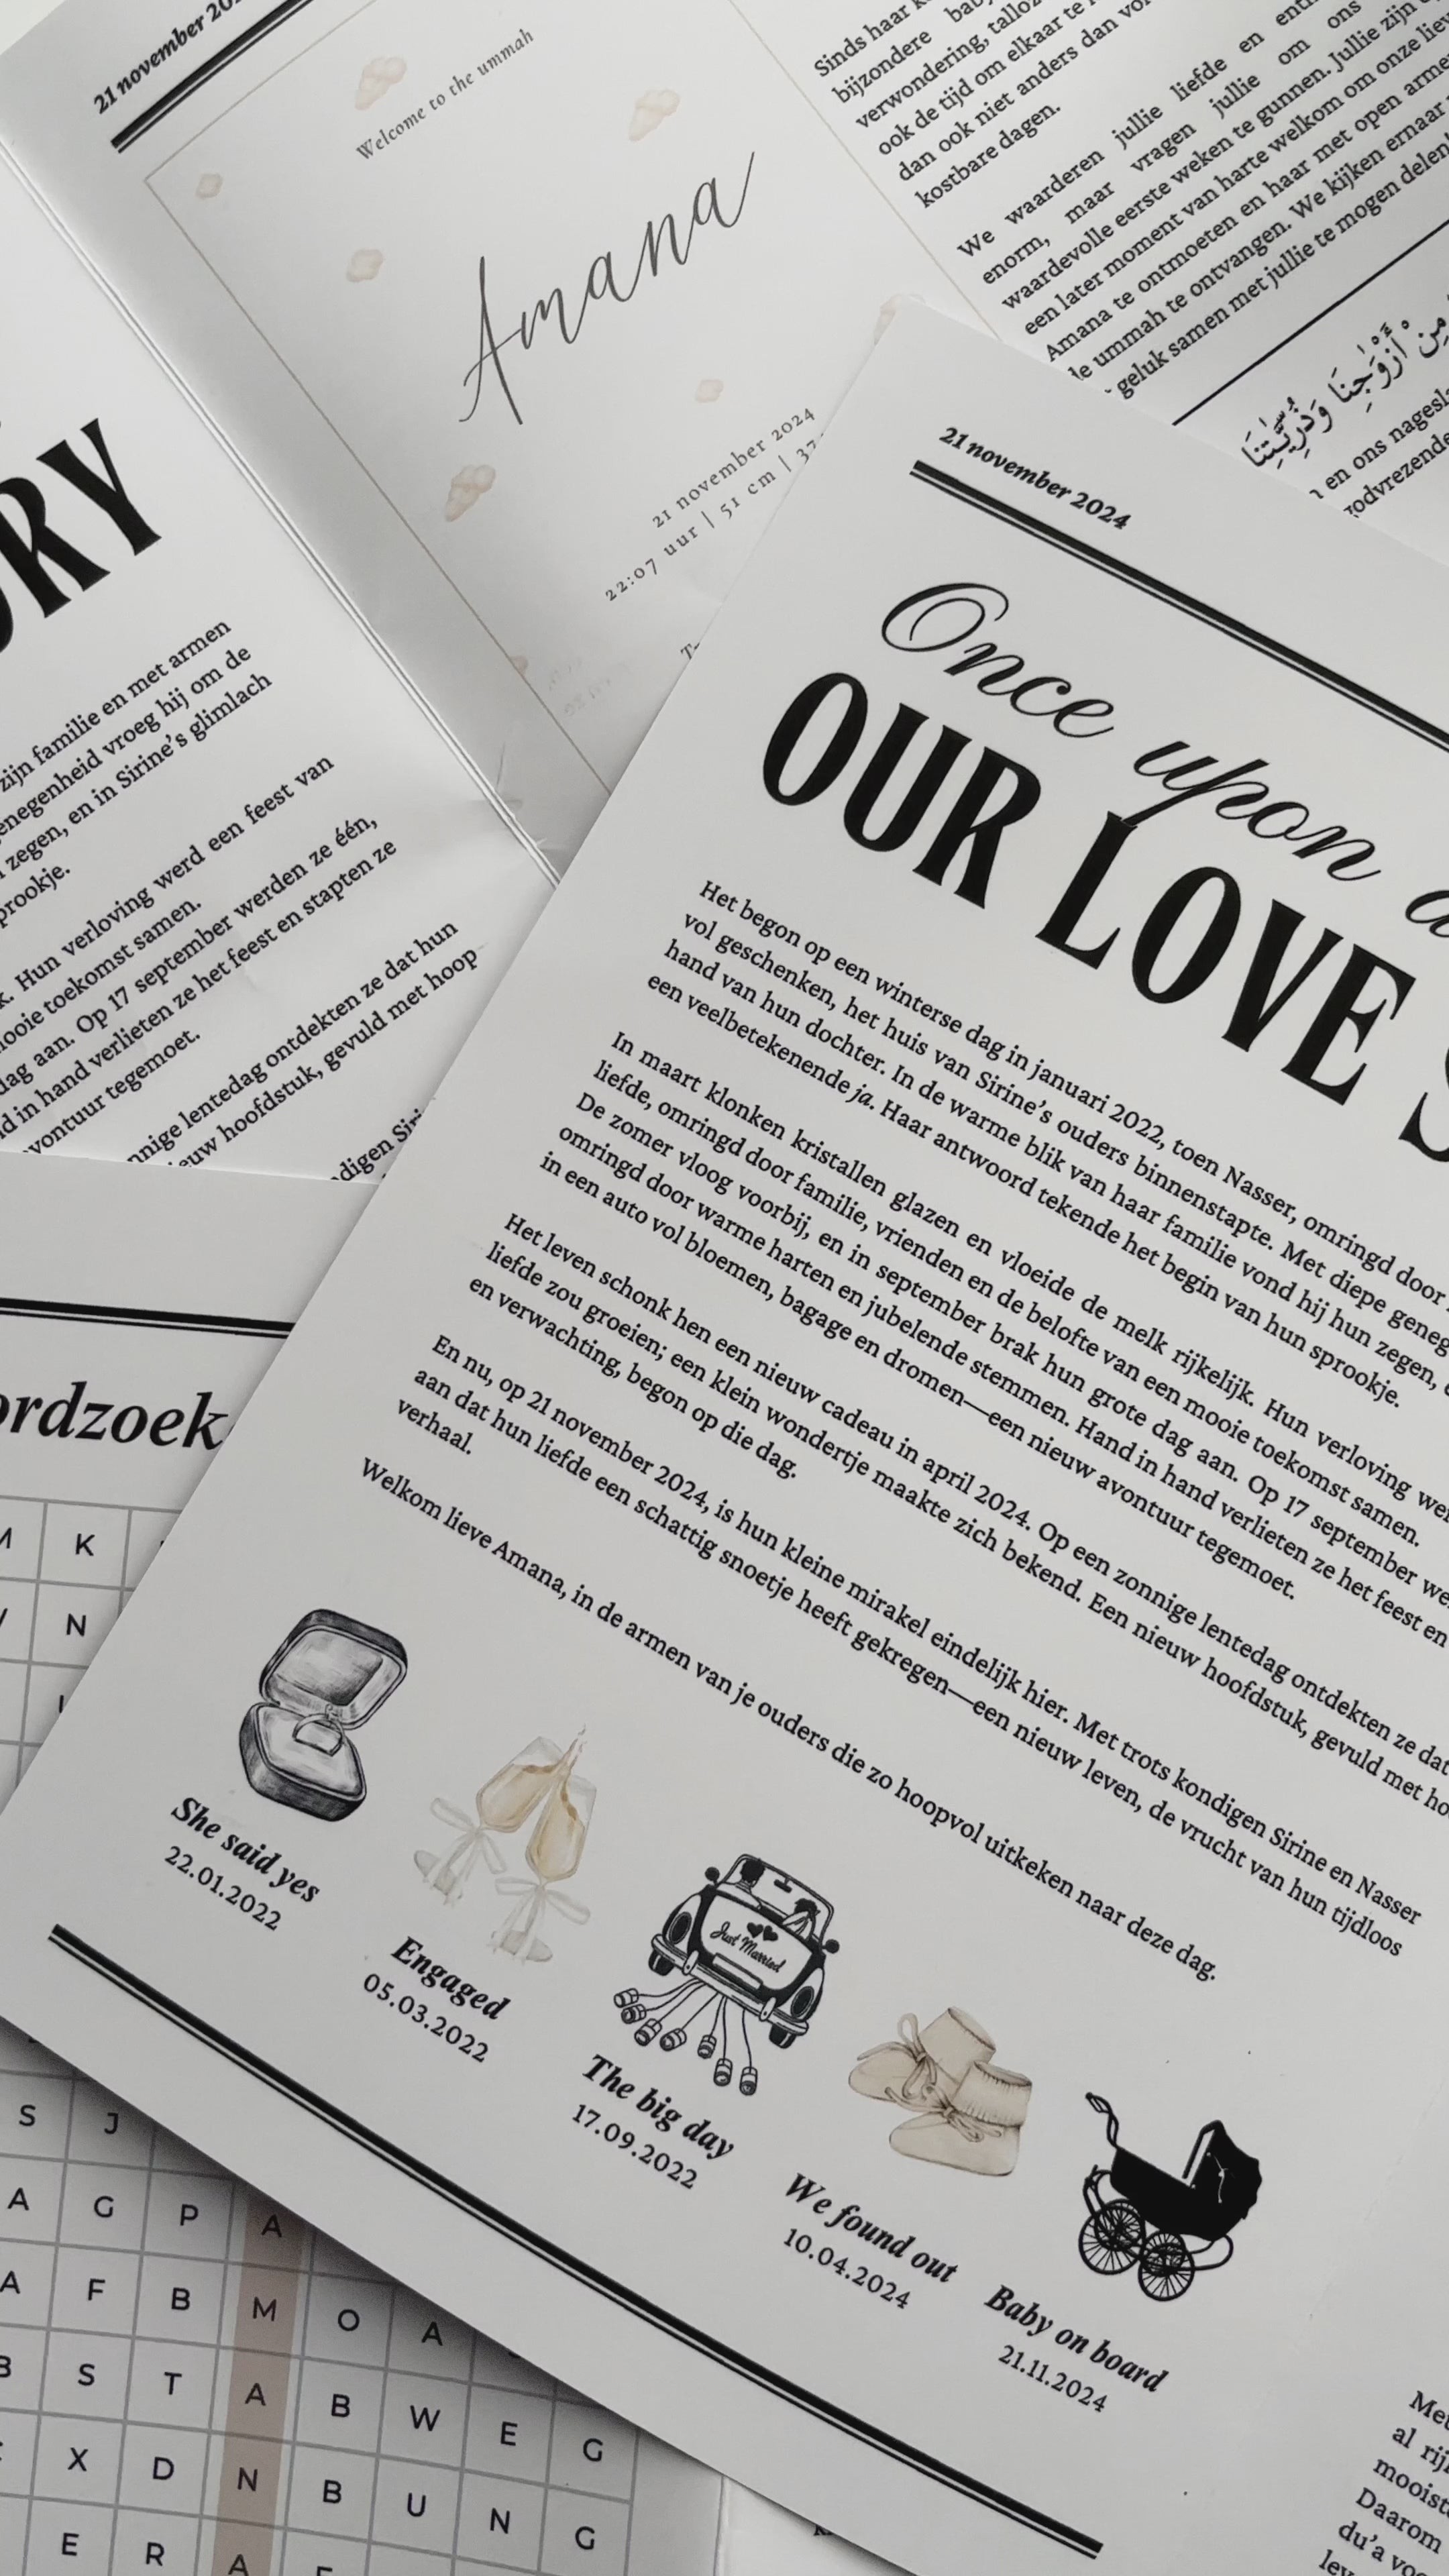 21 november
Welcome to the ummah
Amana
21 november 2024
22:07 uur | 51 cm | 37
Sinds haar
bijzondere
verwondering,
ook de tijd om elkaar te
dan ook niet anders dan
kostbare dagen.
We waarderen jullie liefde en
enorm, maar vragen jullie om ons
waardevolle eerste weken te gunnen. Jullie zijn
een later moment van harte welkom om onze
Amana te ontmoeten en haar met open
de ummah te ontvangen. We kijken ernaar
geluk samen met jullie te mogen delen
مِنْ أَزْوَٰجِنَا وَذُرِّيَّٰتِنَا
en ons
ORY
zijn familie en met armen
genegenheid vroeg hij om de
zegen, en in Sirine's glimlach
sprookje.
Hun verloving werd een feest van
mooie toekomst samen.
dag aan. Op 17 september werden ze één,
in hand verlieten ze het feest en stapten ze
avontuur tegemoet.
lentedag ontdekten ze dat hun
hoofdstuk, gevuld met hoop
21 november 2024
Once upon a
OUR LOVE S
Het begon op een winterse dag in januari 2022, toen Nasser, omringd door
vol geschenken, het huis van Sirine's ouders binnenstapte. Met diepe
hand van hun dochter. In de warme blik van haar familie vond hij hun zegen,
een veelbetekenende ja. Haar antwoord tekende het begin van hun sprookje.
In maart klonken kristallen glazen en vloeide de melk rijkelijk. Hun verloving
liefde, omringd door familie, vrienden en de belofte van een mooie toekomst samen.
De zomer vloog voorbij, en in september brak hun grote dag aan. Op 17 september
omringd door warme harten en jubelende stemmen. Hand in hand verlieten ze het feest en
in een auto vol bloemen, bagage en dromen—een nieuw avontuur tegemoet.
Het leven schonk hen een nieuw cadeau in april 2024. Op een zonnige lentedag ontdekten ze dat
liefde zou groeien; een klein wondertje maakte zich bekend. Een nieuw hoofdstuk, gevuld met
en verwachting, begon op die dag.
En nu, op 21 november 2024, is hun kleine mirakel eindelijk hier. Met trots kondigen Sirine en Nasser
aan dat hun liefde een schattig snoetje heeft gekregen—een nieuw leven, de vrucht van hun tijdloos
verhaal.
Welkom lieve Amana, in de armen van je ouders die zo hoopvol uitkeken naar deze dag.
She said yes
22.01.2022
Engaged
05.03.2022
Just Married
The big day
17.09.2022
We found out
10.04.2024
Baby on board
21.11.2024
ordzoek
M K
N
S J
A G P A
A F B M O A
B S T A B W E G
X D N B U N G
E R A
al
mooiste
Daarom
du'a